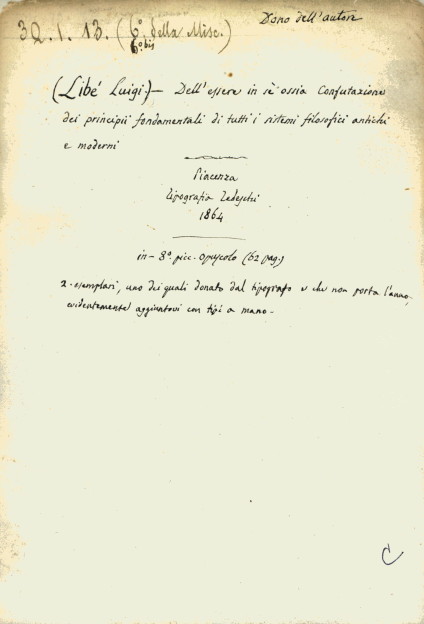 3Q.1.13. (6° della Misc.)
6° bis
Dono dell'autore
(Libé Luigi.) - Dell'essere in sè ossia Confutazione
dei principii fondamentali di tutti i sistemi filosofici antichi
e moderni
Piacenza
tipografia Tedeschi
1864
in-8°. picc. opuscolo (62 pag.)
2. esemplari, uno dei quali donato dal tipografo e che non porta l'anno,
evidentemente aggiuntovi con tipi a mano -
C